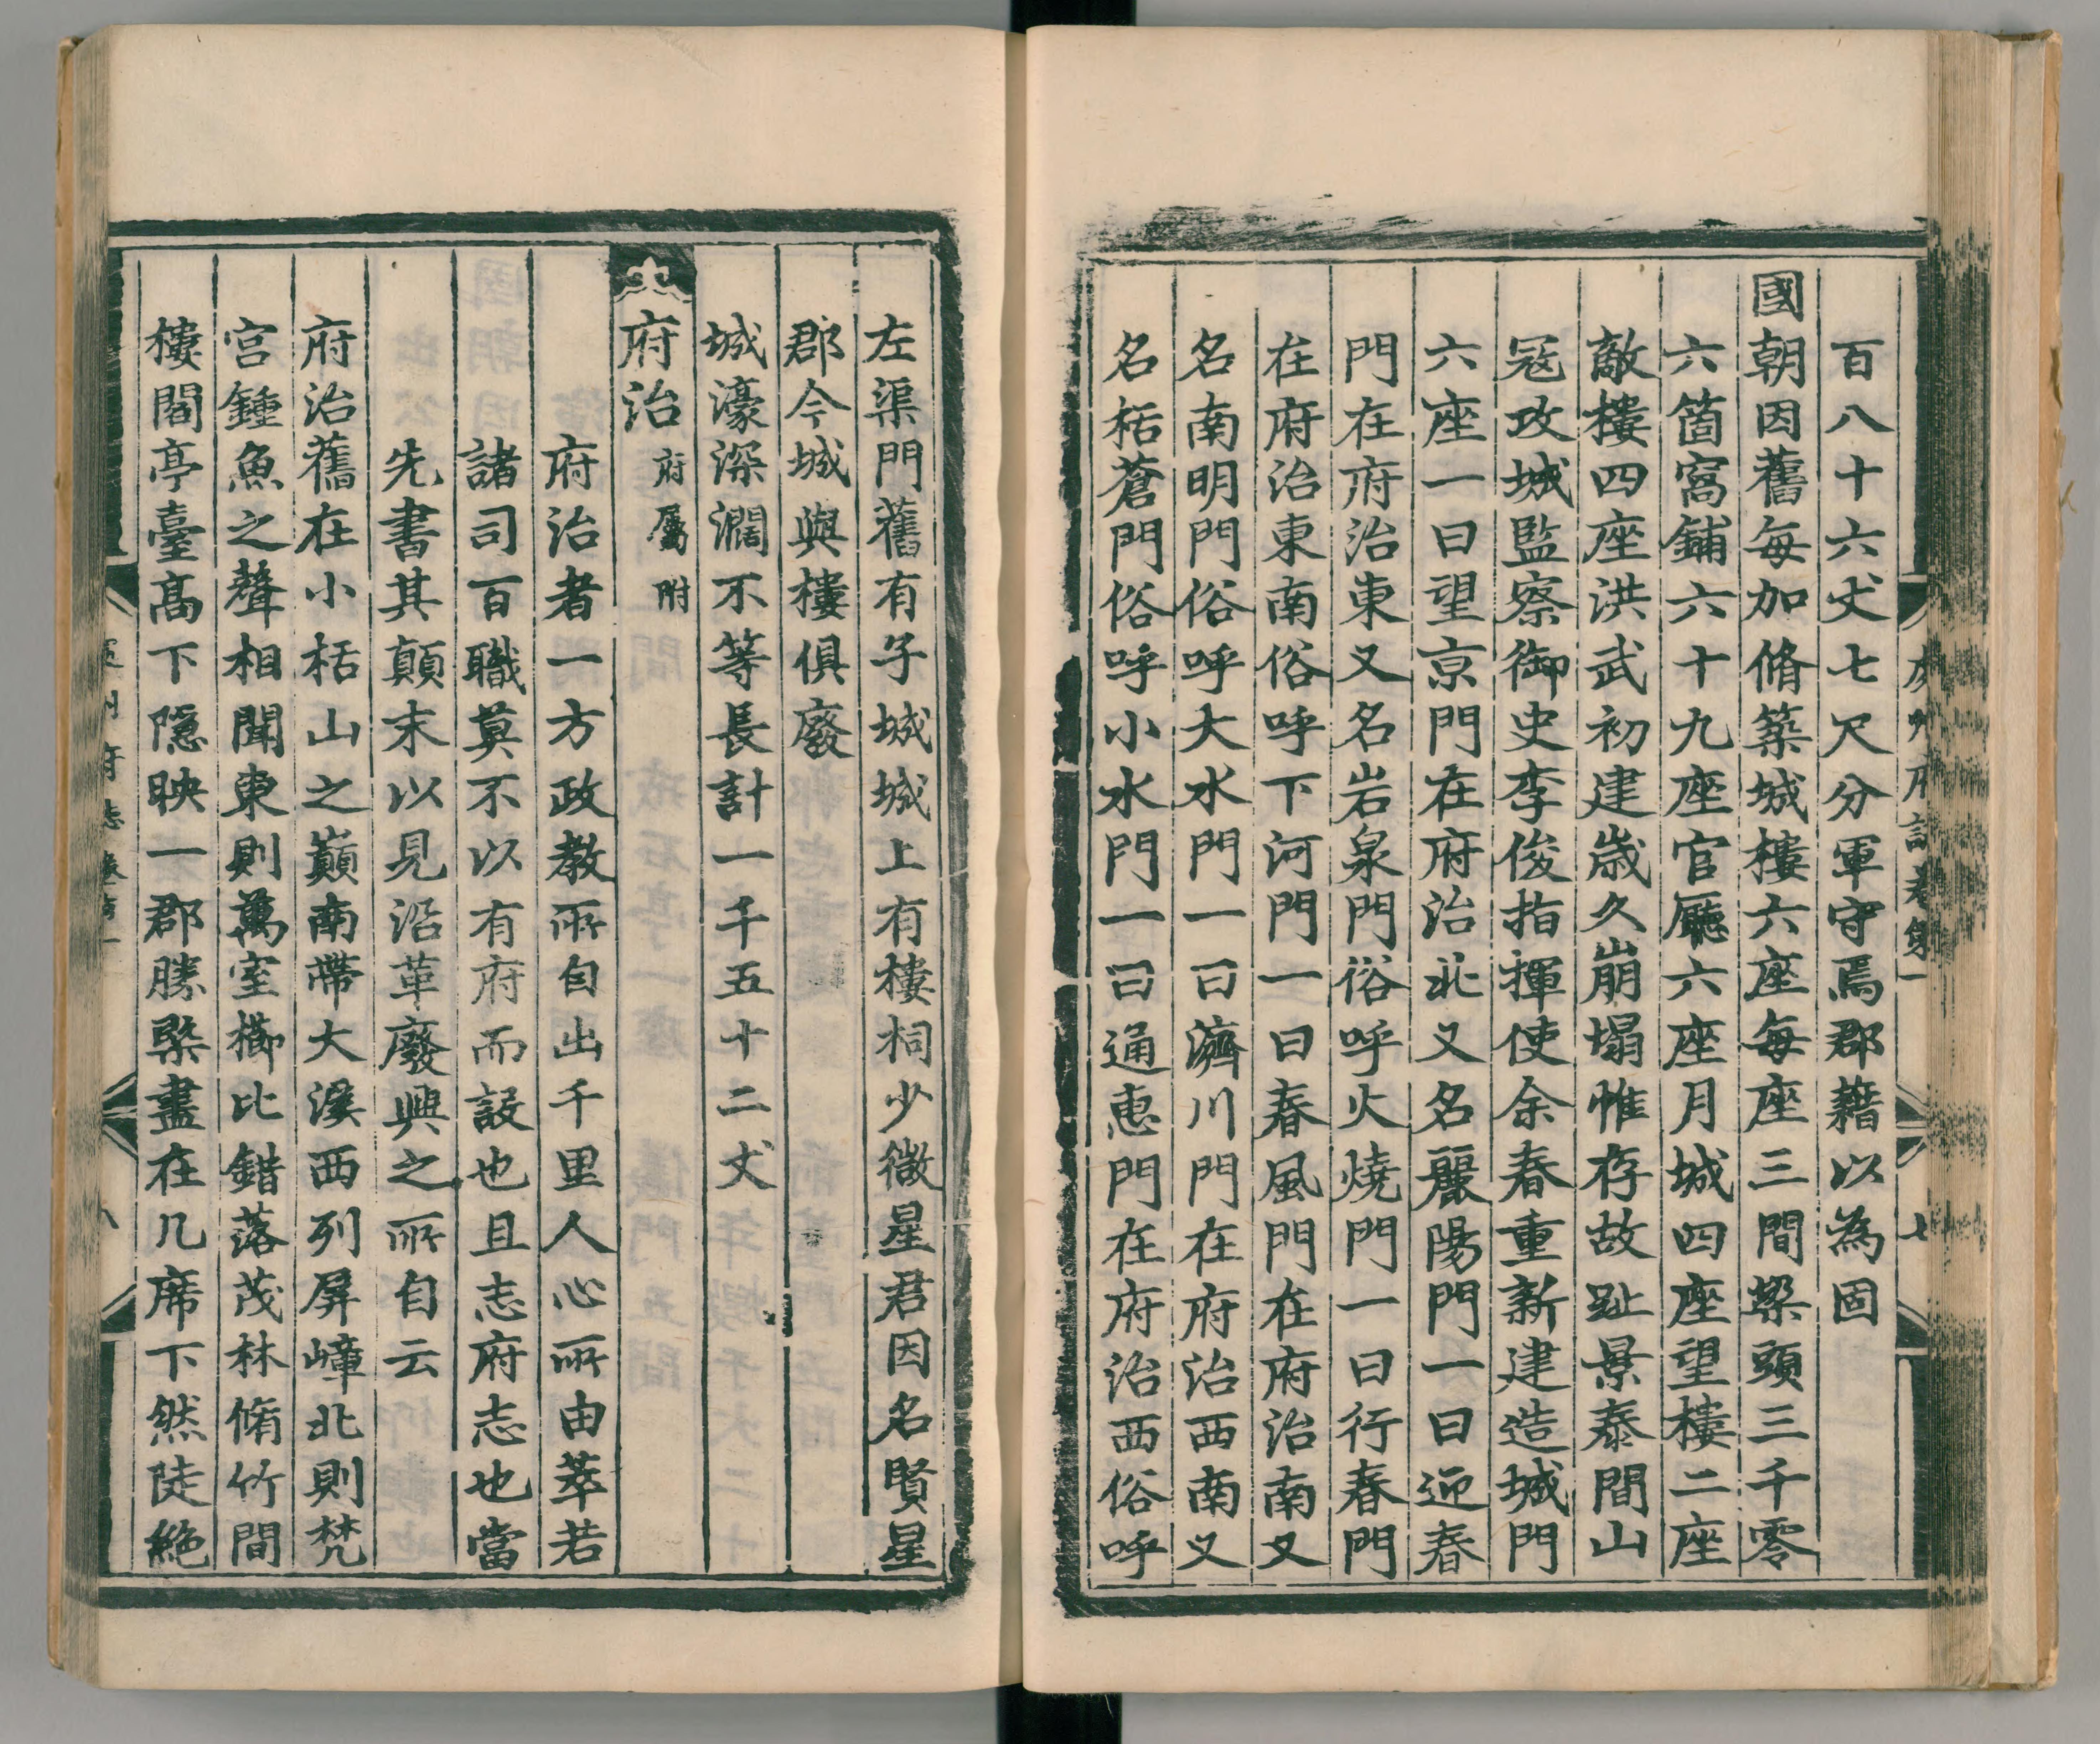 百八十六丈七尺分軍守焉郡藉以為固
國朝因舊每加脩築城樓六座每座三間槊頭三千零
六箇窩鋪六十九座官廳六座月城四座望樓二座
敵樓四座洪武初建歲久崩塌惟存故趾景泰間山
冦攻城監察御史李俊指揮使余春重新建造城門
六座一曰望京門在府治北又名麗陽門一曰迎春
門在府治東又名岩泉門俗呼火燒門一曰行春門
在府治東南俗呼下河門一曰春風門在府治南又
名南明門俗呼大水門一曰濟川門在府治西南又
名栝蒼門俗呼小水門一曰通惠門在府治西俗呼
左渠門舊有子城城上有樓祠少微星君因名賢星
郡今城與樓俱廢
城濠深濶不等長計一千五十二丈
府治 府屬附
府治者一方政教所自出千里人心所由萃若
諸司百職莫不以有府而設也且志府志也當
先書其顛末以見沿革廢興之所自云
府治舊在小栝山之巔南帶大溪西列屏嶂北則梵
宮鍾魚之聲相聞東則萬室櫛比錯落茂林脩竹間
樓閣亭臺高下隱映一郡勝槩盡在几席下然陡絶